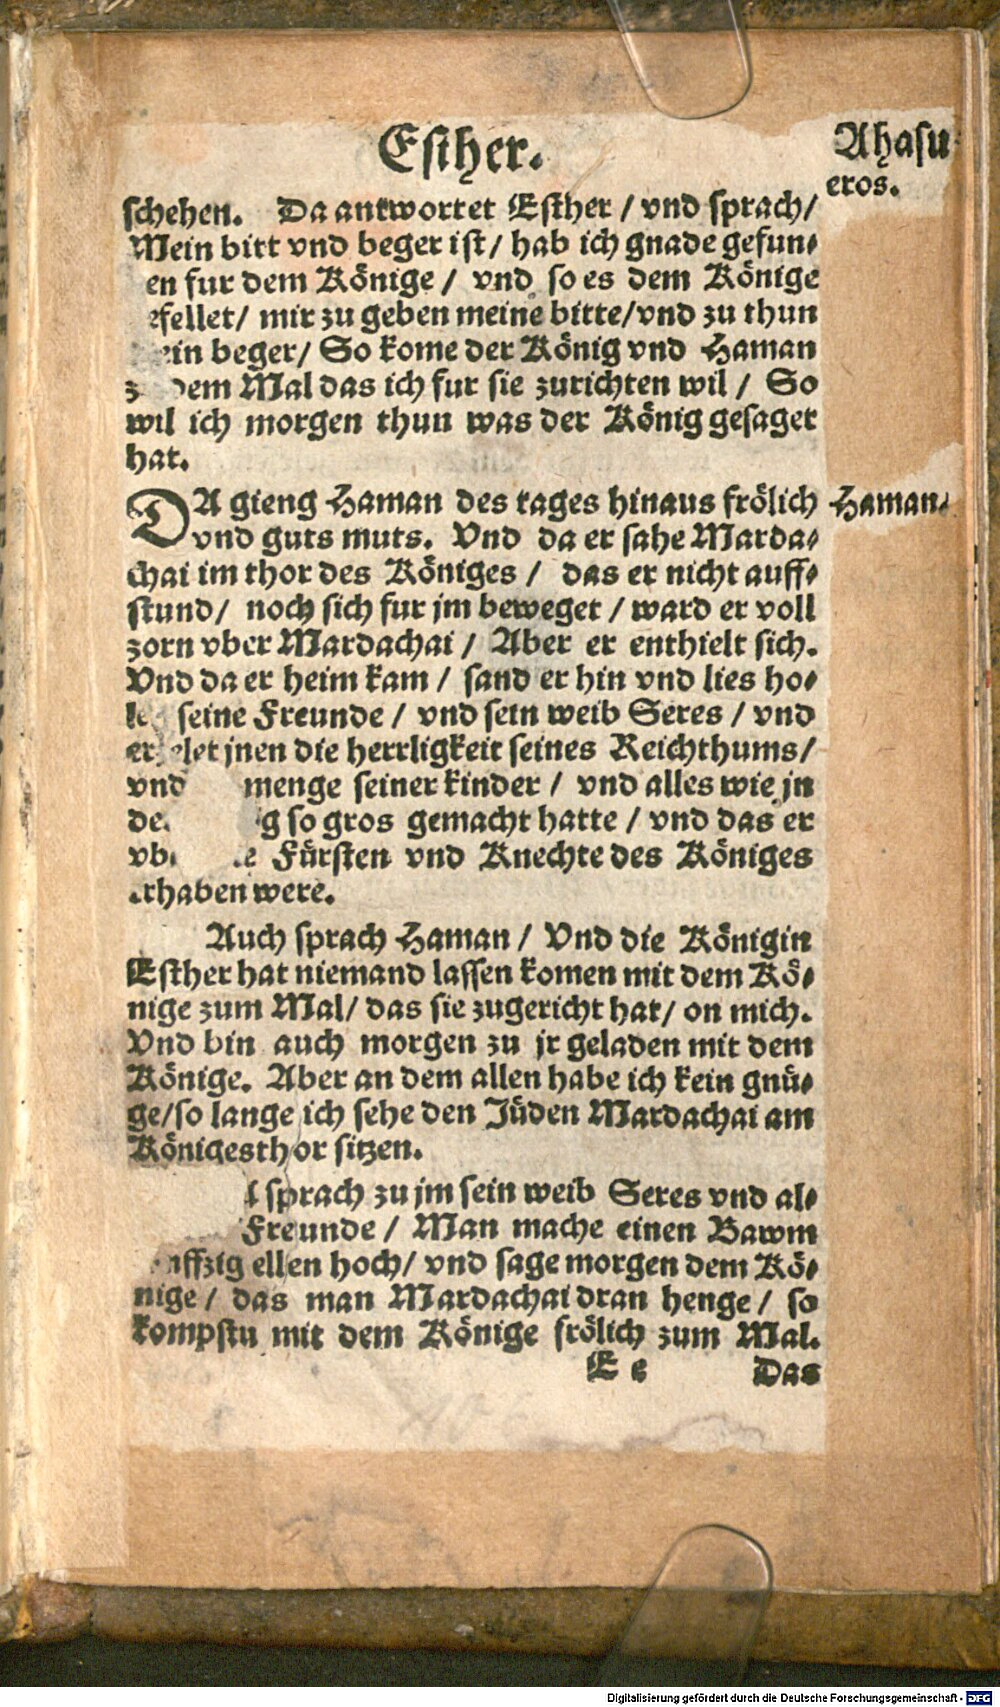 Esther.
Ahasu
eros.
schehen. Da antwortet Esther / vnd sprach/
Mein bitt vnd beger ist/ hab ich gnade gefun-
en fur dem Könige / vnd so es dem Könige
efellet/ mir zu geben meine bitte/vnd zu thun
ein beger/ So kome der König vnd Haman
dem Mal das ich fur sie zurichten wil / So
wil ich morgen thun was der König gesaget
hat.
DA gieng Haman des tages hinaus frölich
Haman.
vnd guts muts. Vnd da er sahe Marda-
chai im thor des Königes / das er nicht auff-
stund/ noch sich fur jm beweget / ward er voll
zorn vber Mardachai / Aber er enthielt sich.
Vnd da er heim kam / sand er hin vnd lies ho-
seine Freunde / vnd sein weib Seres / vnd
elet jnen die herrligkeit seines Reichthums/
vnd menge seiner kinder / vnd alles wie jn
de g so gros gemacht hatte / vnd das er
vb e Fürsten vnd Knechte des Königes
rhaben were.
Auch sprach Haman / Vnd die Königin
Esther hat niemand lassen komen mit dem Kö-
nige zum Mal/ das sie zugericht hat/ on mich.
Vnd bin auch morgen zu jr geladen mit dem
Könige. Aber an dem allen habe ich kein gnü-
ge/so lange ich sehe den Jüden Mardachai am
Königesthor sitzen.
sprach zu jm sein weib Seres vnd al-
Freunde / Man mache einen Bawm
nffzig ellen hoch/ vnd sage morgen dem Kö-
nige / das man Mardachai dran henge / so
kompstu mit dem Könige frölich zum Mal.
E e Das
Digitalisierung gefördert durch die Deutsche Forschungsgemeinschaft - DFG